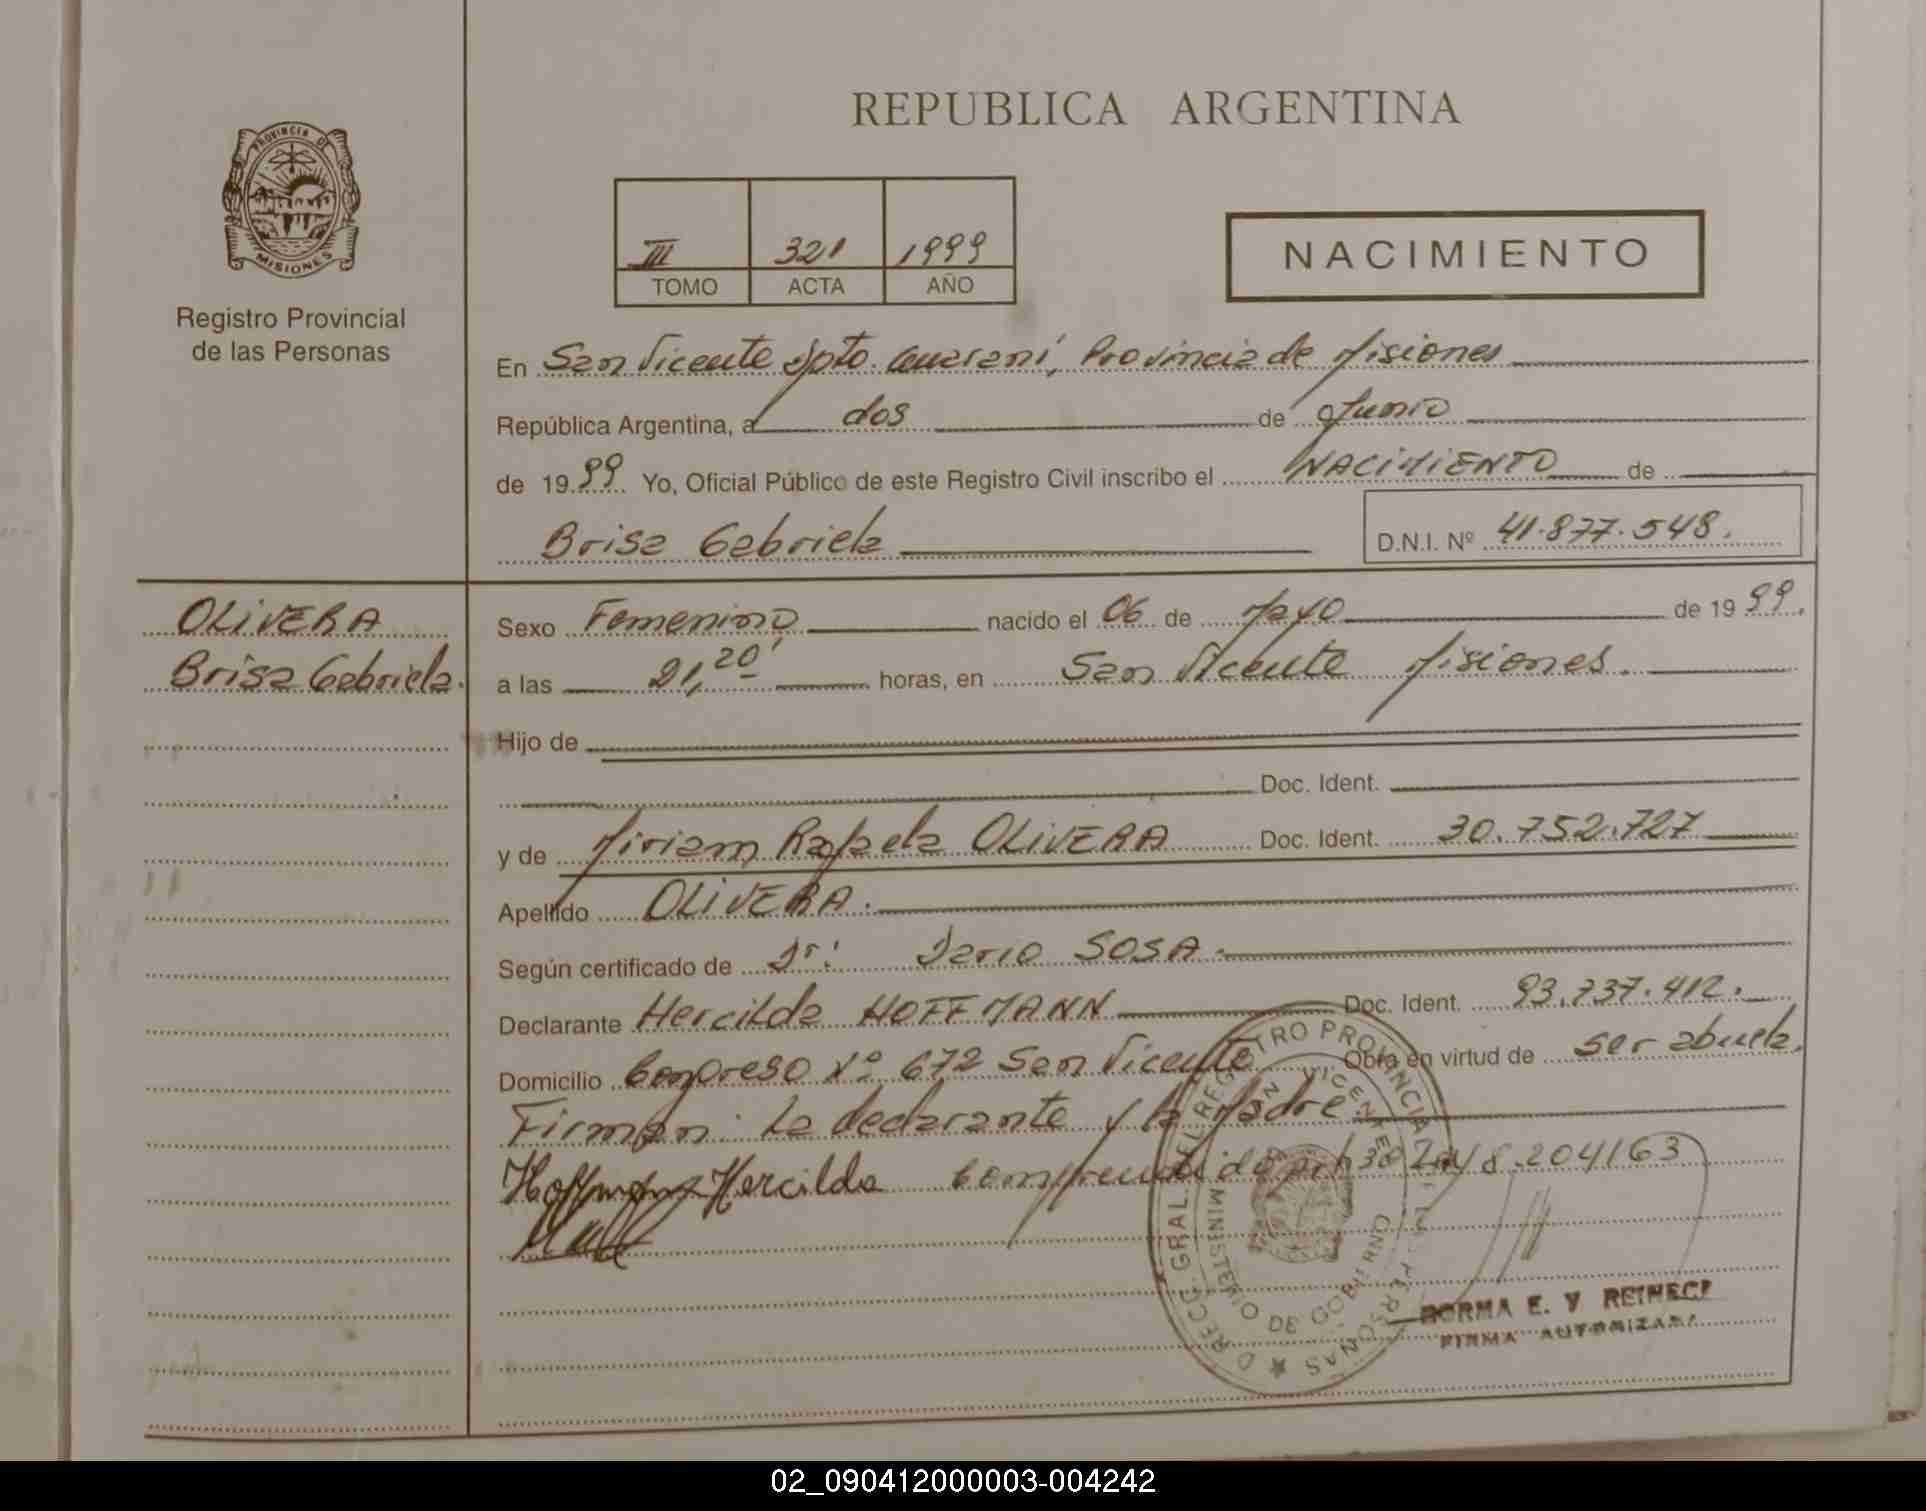 PROVINCIA DE
MISIONES
Registro Provincial
de las Personas
REPUBLICA ARGENTINA
III 321 1999
TOMO ACTA AÑO
NACIMIENTO
En San Vicente Dpto. Guaraní, Provincia de Misiones
República Argentina, a dos de Junio
de 1999 Yo, Oficial Público de este Registro Civil inscribo el NACIMIENTO de
Brisa Gabriela D.N.I. Nº 41.877.548.
OLIVERA
Brisa Gabriela.
Sexo Femenino nacido el 06 de Mayo de 1999.
a las 21,20' horas, en San Vicente Misiones.
Hijo de
Doc. Ident.
y de Miriam Rafaela OLIVERA Doc. Ident. 30.752.727
Apellido OLIVERA.
Según certificado de Dr: Dario SOSA
Declarante Hercilda HOFFMANN Doc. Ident. 93.737.412.
Domicilio Congreso Nº 672 San Vicente Obra en virtud de ser abuela.
Firman: La declarante y la Madre
Hoffmann Hercilda 204163
DIRECC. GRAL. DEL REGISTRO PROVINCIAL DE LAS PERSONAS
MINISTERIO DE GOBIERNO
SAN VICENTE
NORMA E. V REINECK
FIRMA AUTORIZADA
02_090412000003-004242